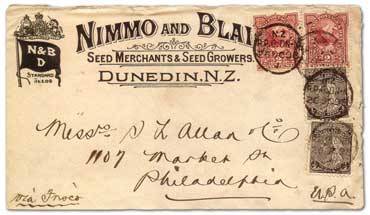 NIMMO AND BLAI
SEED MERCHANTS & SEED GROWERS.
DUNEDIN, N.Z.
N&B
D
STANDARD
SEEDS
N.Z.
Messrs S L Allan & Co
1107 Market St
Philadelphia
via Frisco
U.S.A.